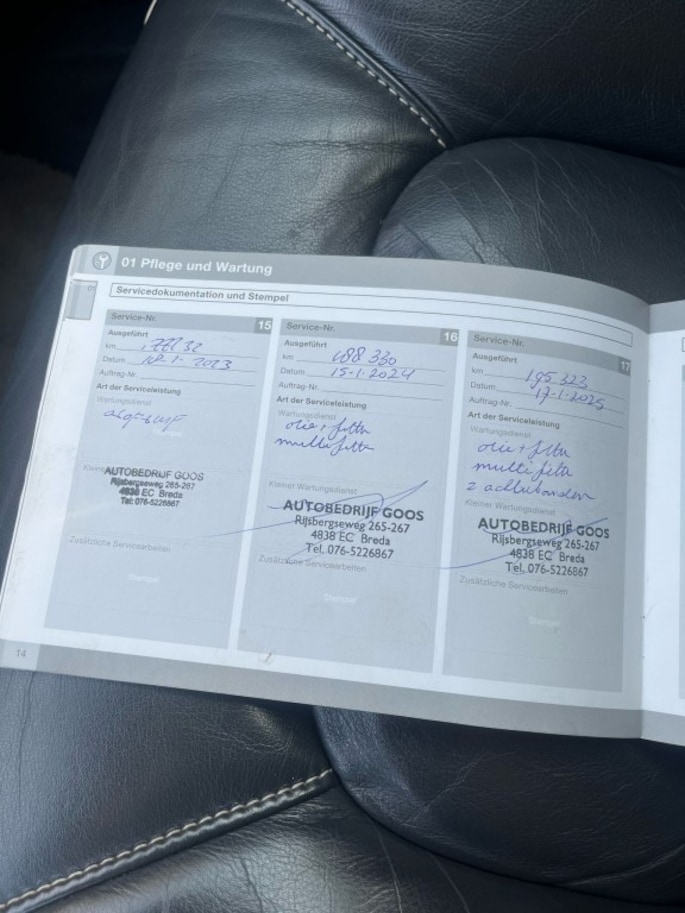 01 Pflege und Wartung
01
Servicedokumentation und Stempel
Service-Nr. 15
Ausgeführt
km
Datum 18-1-2023
Auftrag-Nr.
Art der Serviceleistung
Wartungsdienst
AUTOBEDRIJF GOOS
Rijsbergseweg 265-267
4838 EC Breda
Tel: 076-5226867
Zusätzliche Servicearbeiten
Stempel
Service-Nr. 16
Ausgeführt
km 188 330
Datum 15-1-2024
Auftrag-Nr.
Art der Serviceleistung
Wartungsdienst
olie + filter
multi filter
Kleiner Wartungsdienst
AUTOBEDRIJF GOOS
Rijsbergseweg 265-267
4838 EC Breda
Tel. 076-5226867
Zusätzliche Servicearbeiten
Stempel
Service-Nr. 17
Ausgeführt
km 195 323
Datum 17-1-2025
Auftrag-Nr.
Art der Serviceleistung
Wartungsdienst
olie + filter
multi filter
2 achterbanden
Kleiner Wartungsdienst
AUTOBEDRIJF GOOS
Rijsbergseweg 265-267
4838 EC Breda
Tel. 076-5226867
Zusätzliche Servicearbeiten
Stempel
14